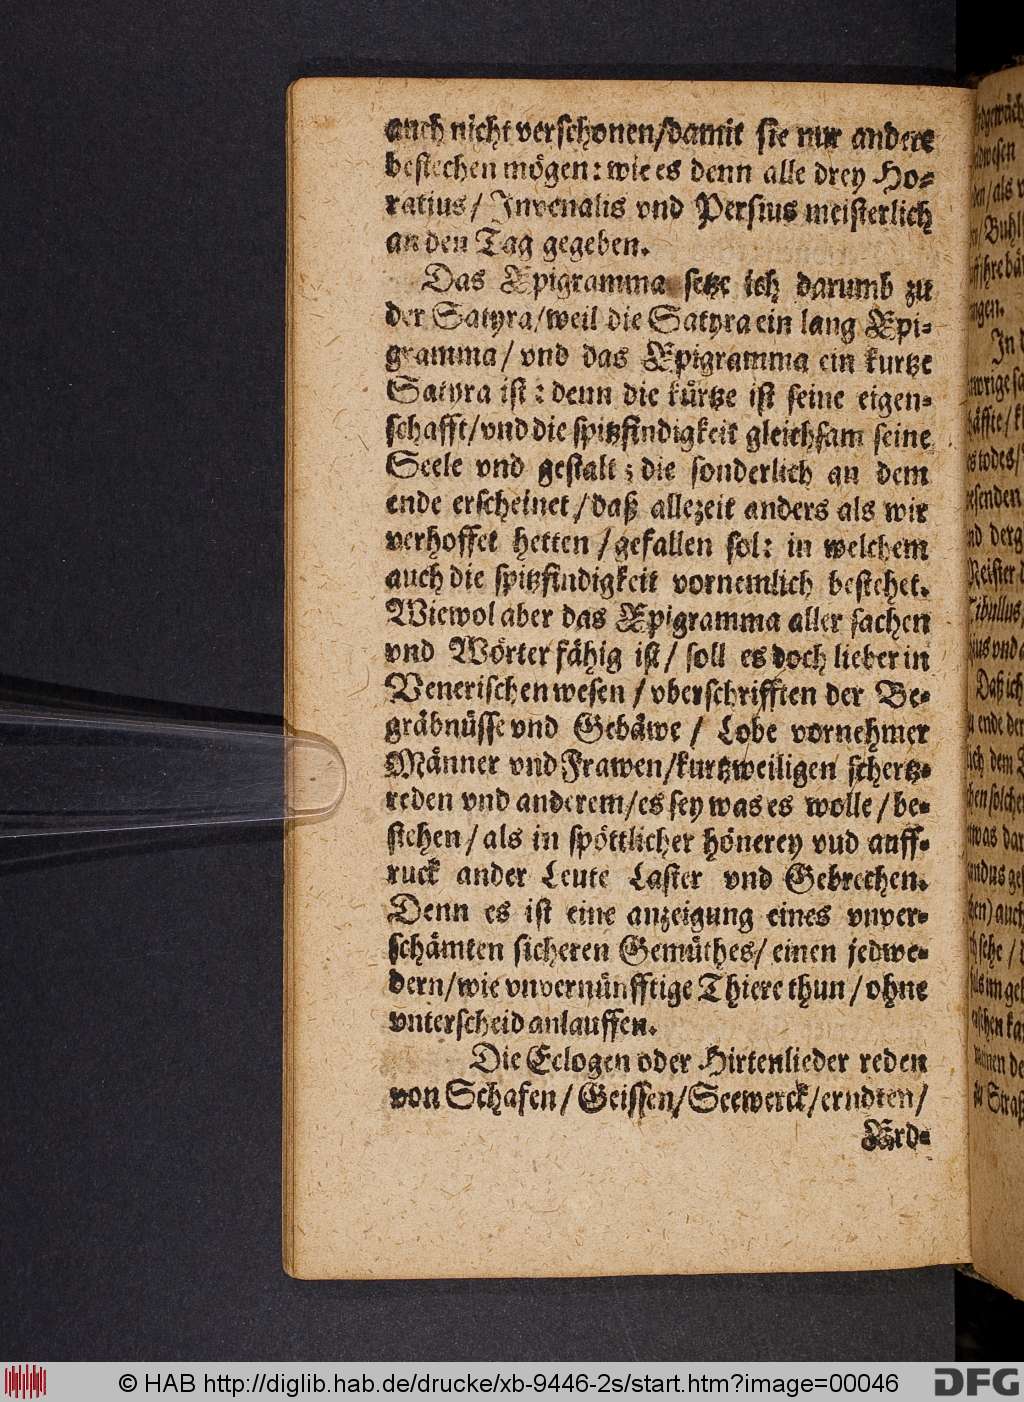 auch nicht verschonen/damit sie nur andere
bestechen mögen: wie es denn alle drey Ho-
ratius/ Invenalis vnd Persius meisterlich
an den Tag gegeben.
Das Epigramma setze ich darumb zu
der Satyra/weil die Satyra ein lang Epi-
gramma/ vnd das Epigramma ein kurtze
Satyra ist: denn die kürtze ist seine eigen-
schafft/vnd die spitzfindigkeit gleichsam seine
Seele vnd gestalt; die sonderlich an dem
ende erscheinet/daß allezeit anders als wir
verhoffet hetten/gefallen sol: in welchem
auch die spitzfindigkeit vornemlich bestehet.
Wiewol aber das Epigramma aller sachen
vnd Wörter fähig ist/ soll es doch lieber in
Venerischen wesen/vberschrifften der Be-
gräbnüsse vnd Gebäwe/ Lobe vornehmer
Männer vnd Frawen/kurtzweiligen schertz-
reden vnd anderem/es sey was es wolle/be-
stehen/als in spöttlicher hönerey vud auff-
ruck ander Leute Laster vnd Gebrechen.
Denn es ist eine anzeigung eines vnver-
schämten sicheren Gemüthes/ einen jedwe-
dern/wie vnvernünfftige Thiere thun/ohne
vnterscheid anlauffen.
Die Eclogen oder Hirtenlieder reden
von Schafen/ Geissen/Seewerck/erndten/
Erd-
© HAB http://diglib.hab.de/drucke/xb-9446-2s/start.htm?image=00046
DFG